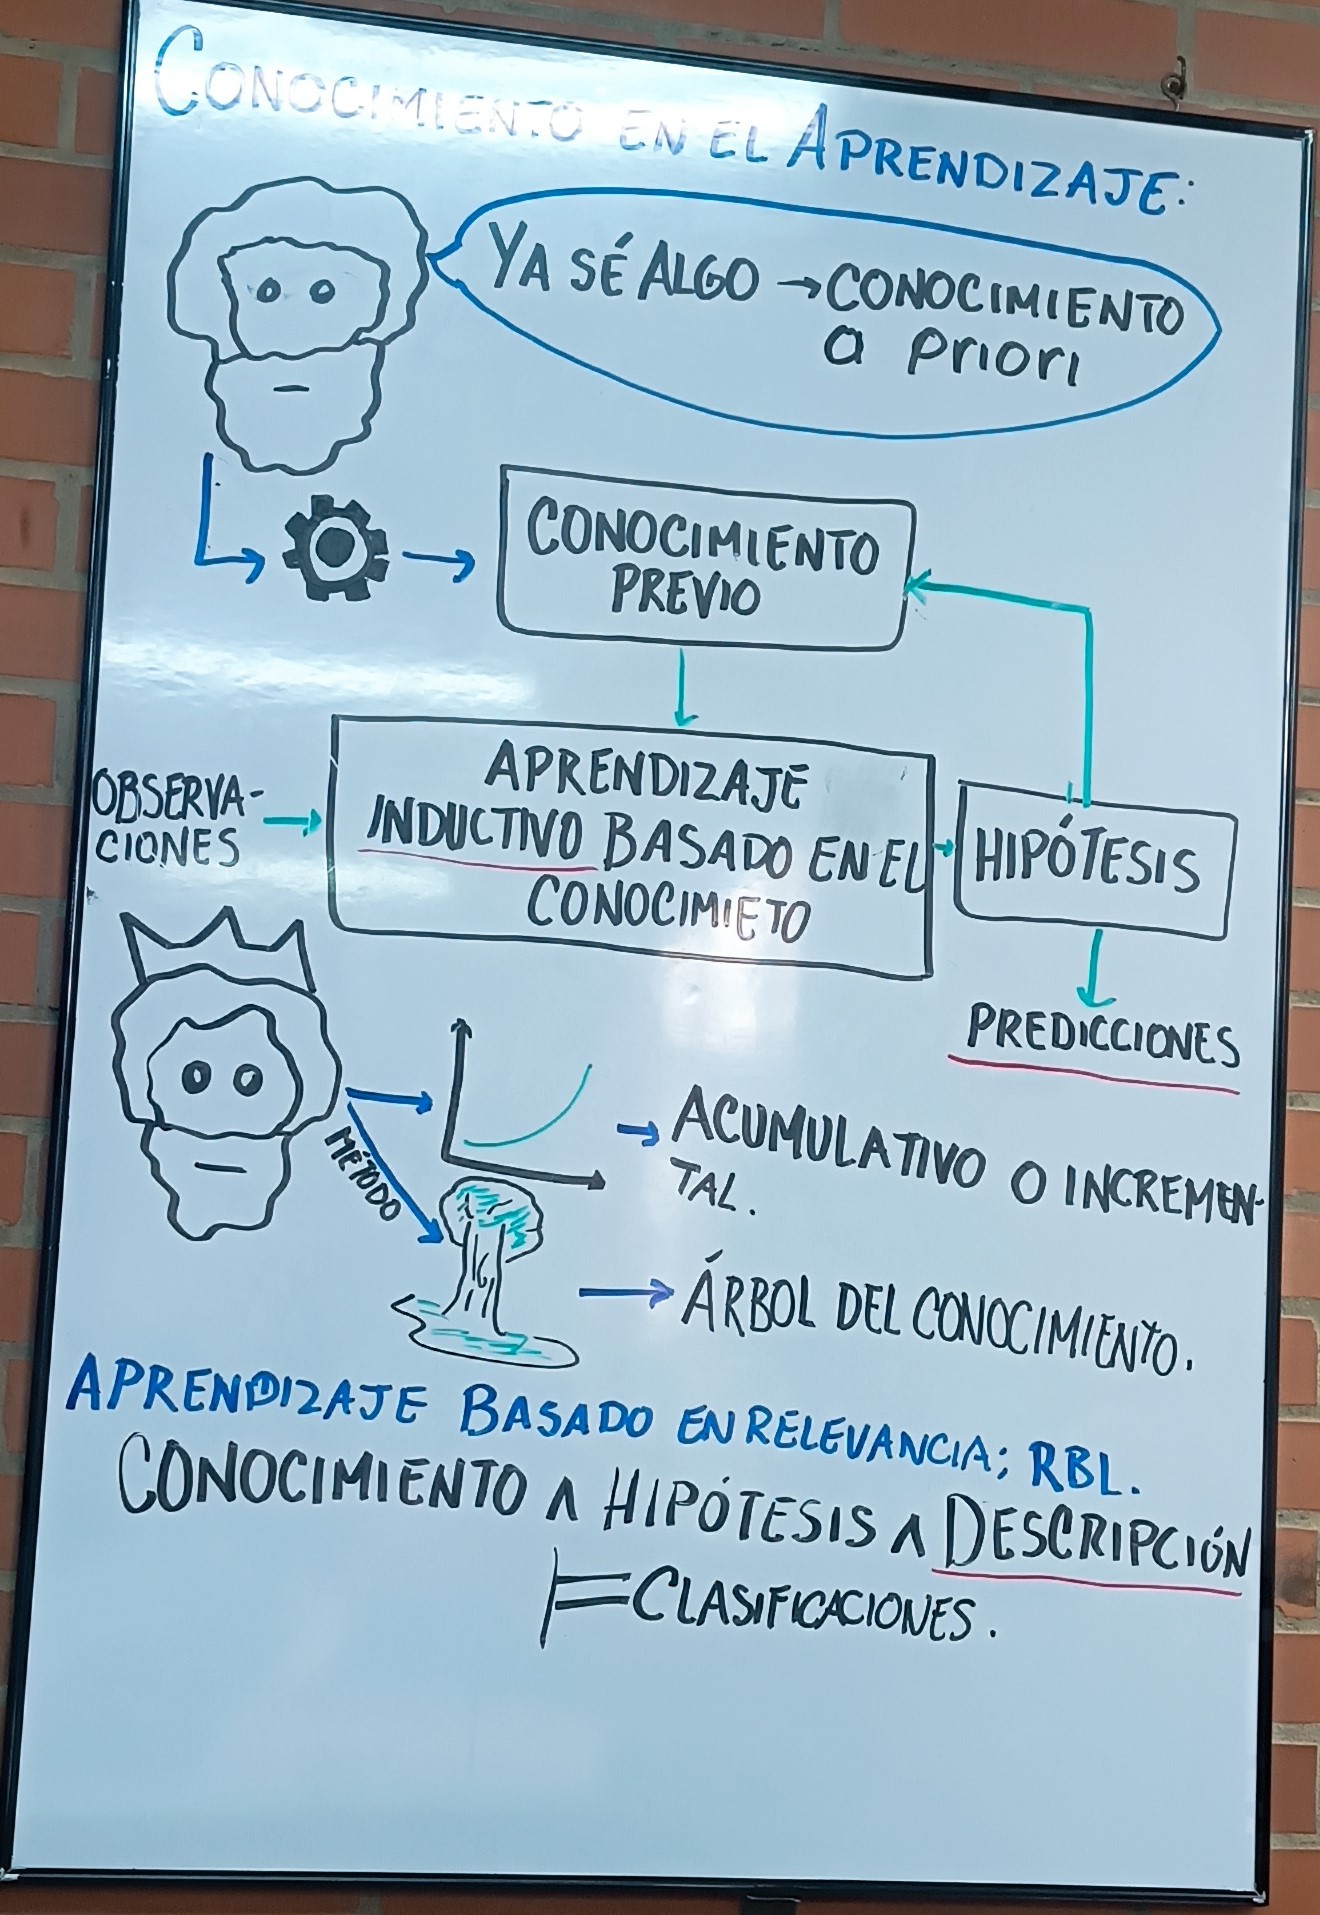 CONOCIMIENTO EN EL APRENDIZAJE:
YA SÉ ALGO → CONOCIMIENTO
a priori
CONOCIMIENTO
PREVIO
OBSERVA-
CIONES
APRENDIZAJE
INDUCTIVO BASADO EN EL
CONOCIMIETO
HIPÓTESIS
PREDICCIONES
MÉTODO
→ ACUMULATIVO O INCREMEN-
TAL.
→ ÁRBOL DEL CONOCIMIENTO.
APRENDIZAJE BASADO EN RELEVANCIA; RBL.
CONOCIMIENTO ∧ HIPÓTESIS ∧ DESCRIPCIÓN
⊨ CLASIFICACIONES.